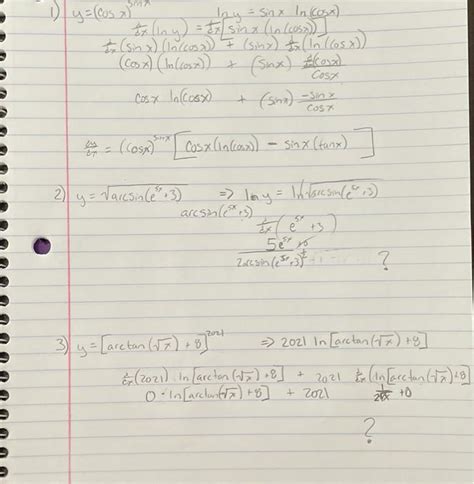 1) y=(cosx)^sinx ln y = sinx ln(cosx)
d/dx (ln y) = d/dx [sinx (ln(cosx))]
d/dx (sinx)(ln(cosx)) + (sinx) d/dx (ln(cosx))
(cosx)(ln(cosx)) + (sinx) d/dx(cosx)/cosx
cosx ln(cosx) + (sinx) -sinx/cosx
dy/dx = (cosx)^sinx [cosx(ln(cosx)) - sinx(tanx)]
2) y = √arcsin(e^5x+3) => ln y = ln√arcsin(e^5x+3)
arcsin(e^5x+3)
d/dx (e^5x +3)
5e^5x +0
2arcsin(e^5x+3)^½
?
3) y = [arctan(√x) +8]^2021 => 2021 ln[arctan(√x)+8]
d/dx (2021) · ln[arctan(√x)+8] + 2021 d/dx (ln[arctan(√x)+8]
0 · ln[arctan(√x)+8] + 2021 1/2√x +0
?